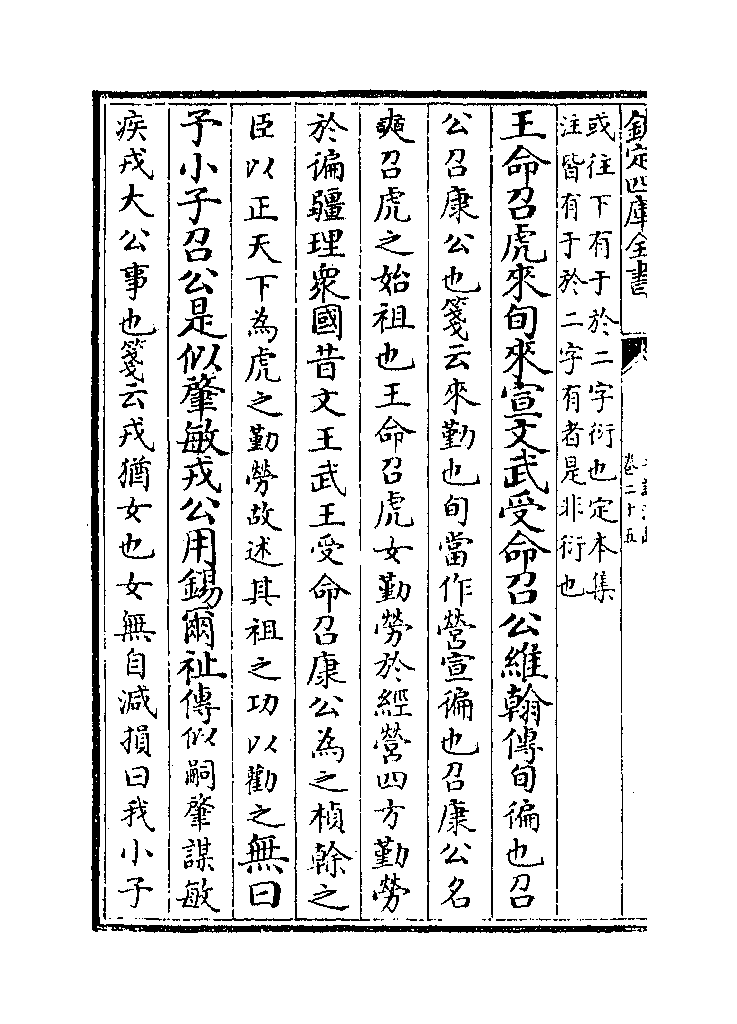 欽定四庫全書
卷二十五
或往下有于於二字衍也定本集
注皆有于於二字有者是非衍也
王命召虎來旬來宣文武受命召公維翰傳旬徧也召
公召康公也箋云來勤也旬當作營宣徧也召康公名
奭召虎之始祖也王命召虎女勤勞於經營四方勤勞
於徧疆理衆國昔文王武王受命召康公為之楨榦之
臣以正天下為虎之勤勞故述其祖之功以勸之無曰
予小子召公是似肇敏戎公用錫爾祉傳似嗣肇謀敏
疾戎大公事也箋云戎猶女也女無自減損曰我小子